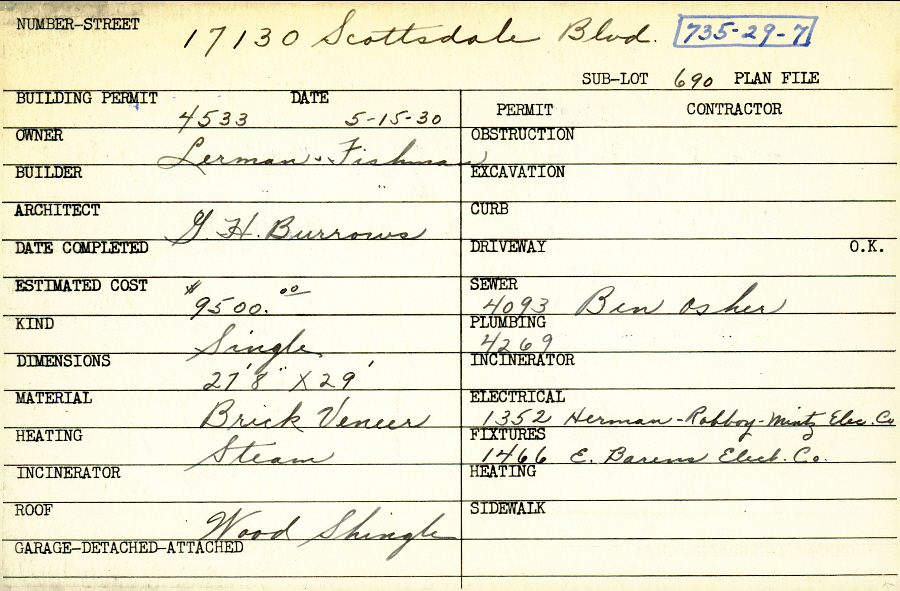 NUMBER-STREET 17130 Scottsdale Blvd. 735-29-7
SUB-LOT 690 PLAN FILE
BUILDING PERMIT 4533 DATE 5-15-30
PERMIT CONTRACTOR
OWNER Lerman & Fishman
OBSTRUCTION
BUILDER "
EXCAVATION
ARCHITECT G. H. Burrows
CURB
DATE COMPLETED
DRIVEWAY O.K.
ESTIMATED COST $9500.00
SEWER 4093 Ben Osher
KIND Single
PLUMBING 4269
DIMENSIONS 27'8" X 29'
INCINERATOR
MATERIAL Brick Veneer
ELECTRICAL 1352 Herman-Robboy-Mintz Elec. Co
HEATING Steam
FIXTURES 1466 E. Barens Elect. Co.
INCINERATOR
HEATING
ROOF Wood Shingle
SIDEWALK
GARAGE-DETACHED-ATTACHED